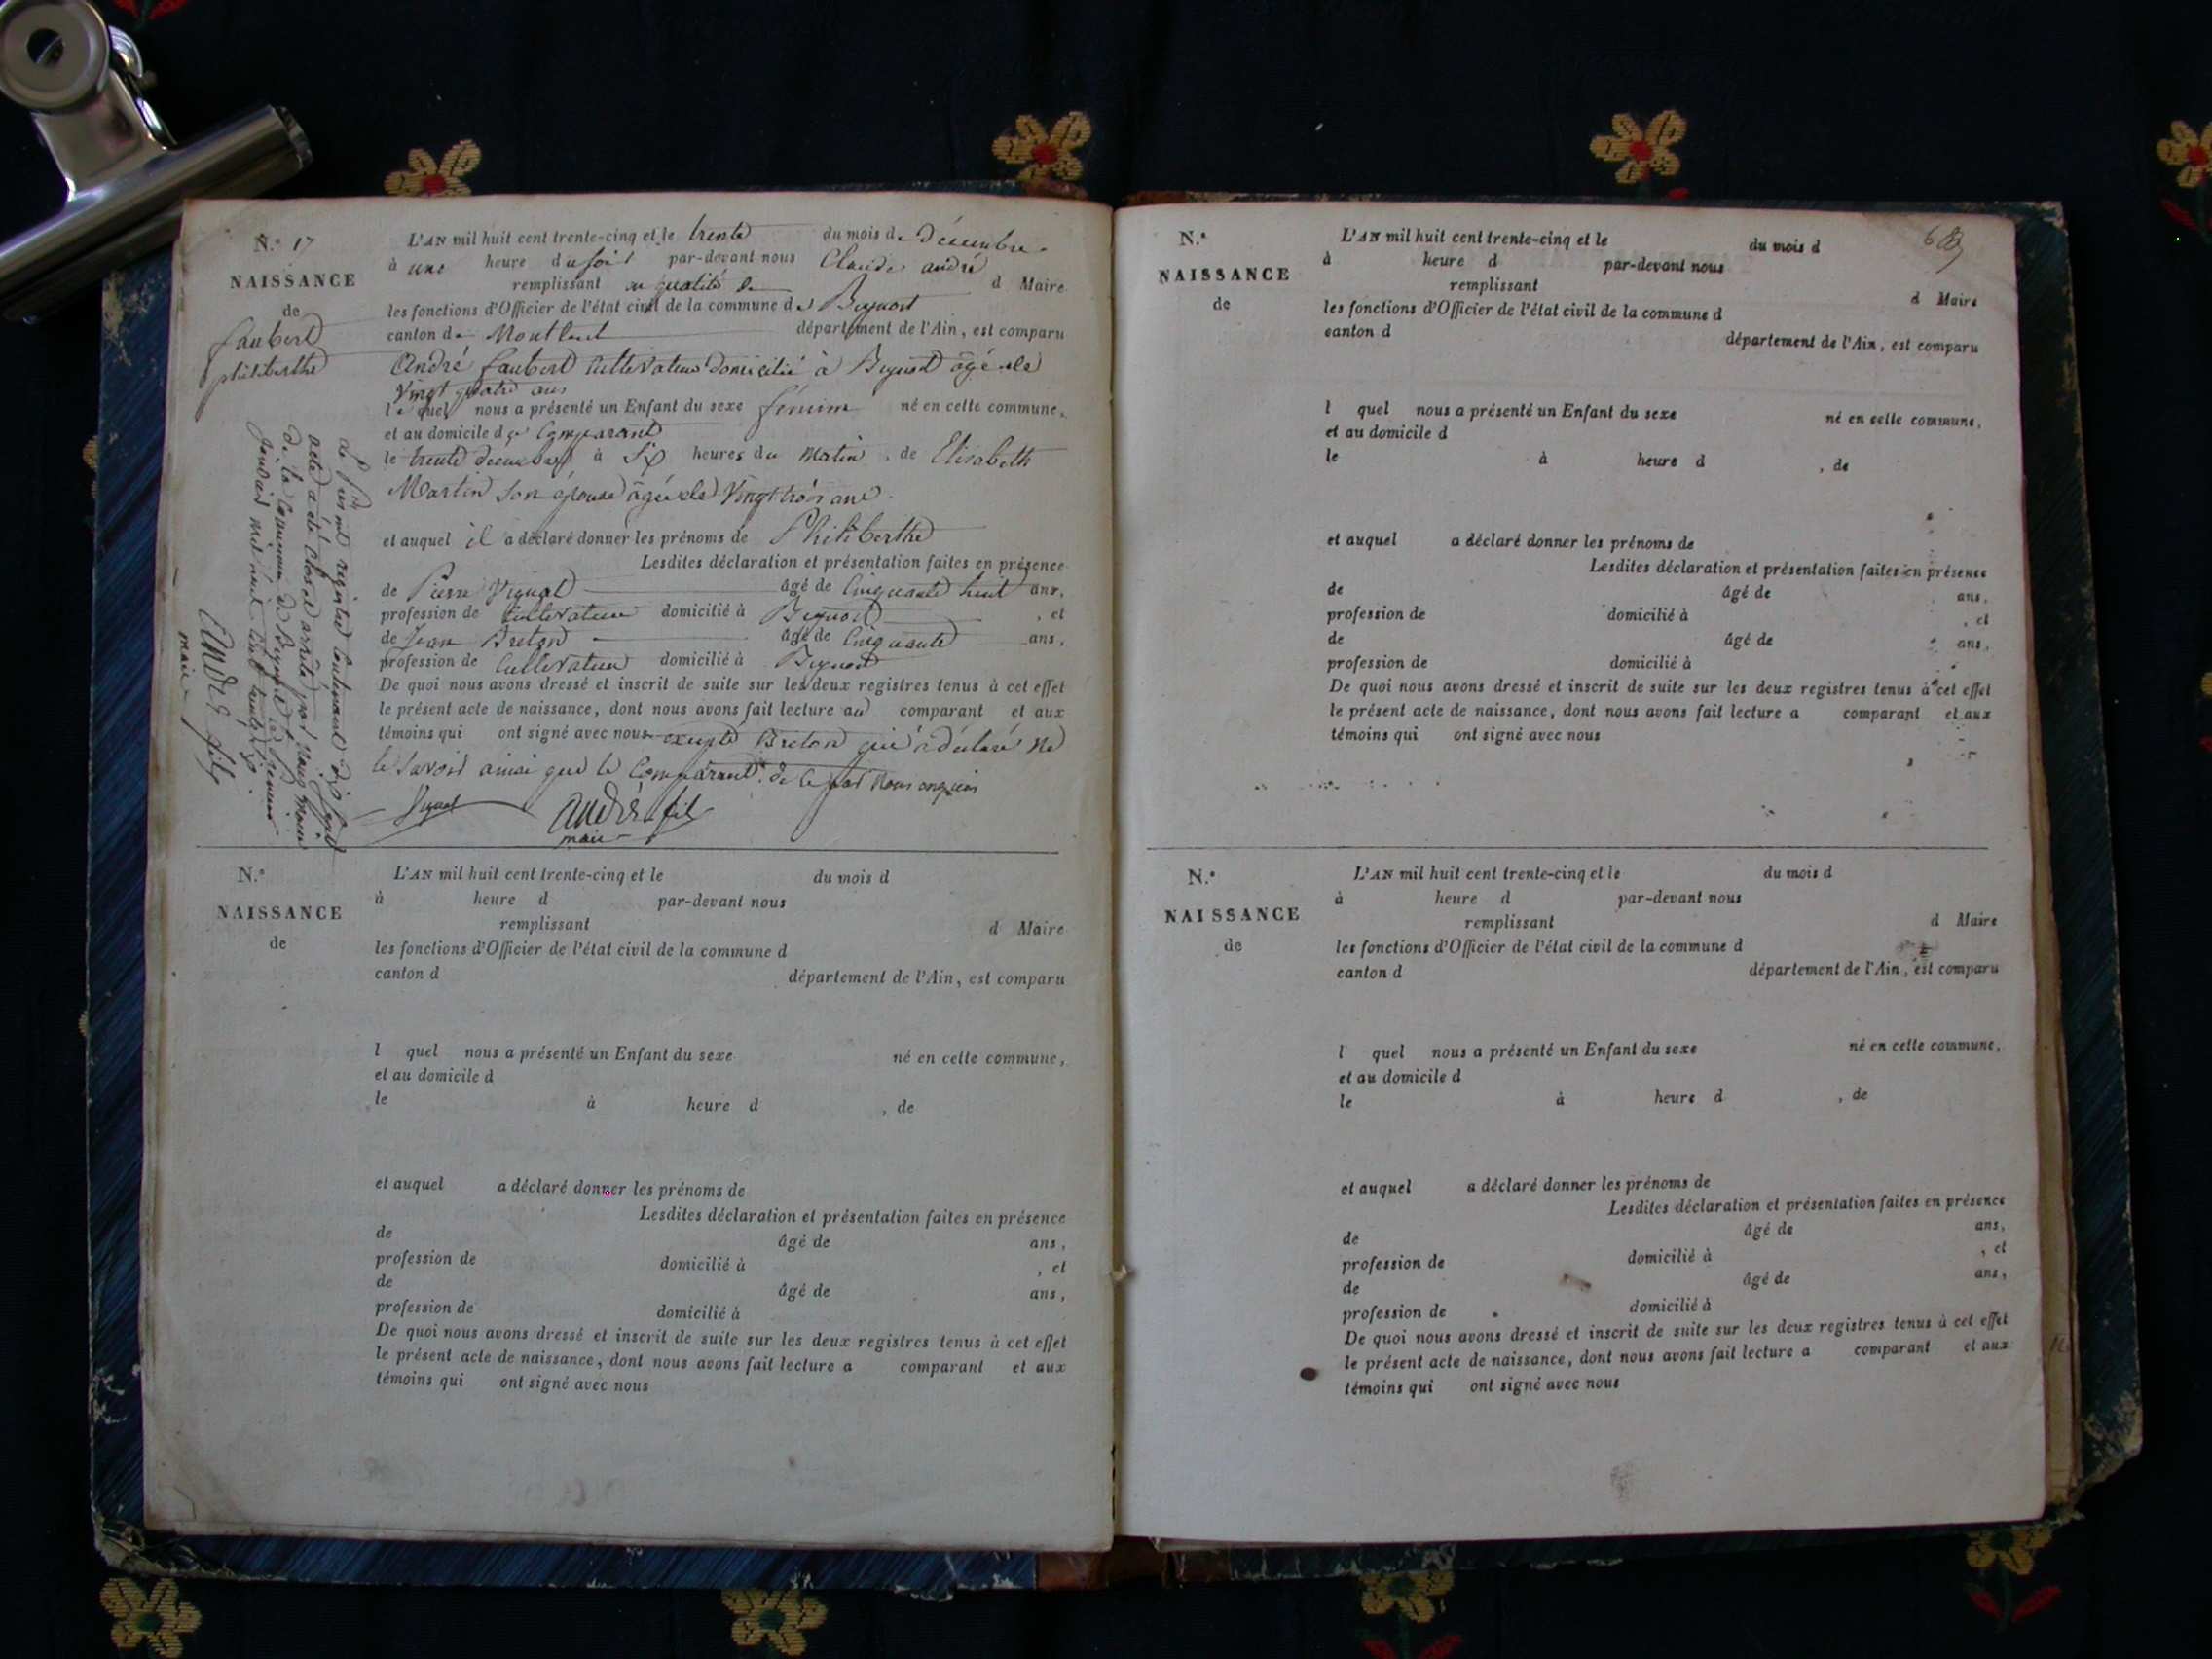 N.° 17
NAISSANCE
de
faubert
philiberthe
L'AN mil huit cent trente-cinq et le trente du mois de décembre
à une heure du soir par-devant nous Claude andré
remplissant en qualité de d Maire
les fonctions d'Officier de l'état civil de la commune de Beynost
canton de Montluel département de l'Ain, est comparu
André faubert Cultivateur domicilié à Beynost âgé de
Vingt quatre ans
le quel nous a présenté un Enfant du sexe féminin né en cette commune,
et au domicile du Comparant
le trente decembre à Six heures du Matin, de Elisabeth
Martin Son épouse âgée de Vingt trois ans
et auquel il a déclaré donner les prénoms de Philiberthe
Lesdites déclaration et présentation faites en présence
de Pierre Vignat âgé de Cinquante huit ans,
profession de Cultivateur domicilié à Beynost, et
de Jean Breton âgé de Cinquante ans,
profession de Cultivateur domicilié à Beynost
De quoi nous avons dressé et inscrit de suite sur les deux registres tenus à cet effet
le présent acte de naissance, dont nous avons fait lecture au comparant et aux
témoins qui ont signé avec nous excepté Breton qui a déclaré ne
le Savoir ainsi que le Comparant. de ce par Nous enquis
Vignat
andré fils
maire
Le présent registre contenant dix sept
actes a été clos et arrêté par Nous maire
de la Commune de Beynost le premier
janvier mil huit cent trente six.
André fils
maire
N.°
NAISSANCE
de
L'AN mil huit cent trente-cinq et le du mois d
à heure d par-devant nous
remplissant d Maire
les fonctions d'Officier de l'état civil de la commune d
canton d département de l'Ain, est comparu
l quel nous a présenté un Enfant du sexe né en cette commune,
et au domicile d
le à heure d , de
et auquel a déclaré donner les prénoms de
Lesdites déclaration et présentation faites en présence
de âgé de ans,
profession de domicilié à , et
de âgé de ans,
profession de domicilié à
De quoi nous avons dressé et inscrit de suite sur les deux registres tenus à cet effet
le présent acte de naissance, dont nous avons fait lecture a comparant et aux
témoins qui ont signé avec nous
N.°
NAISSANCE
de
L'AN mil huit cent trente-cinq et le du mois d
à heure d par-devant nous
remplissant d Maire
les fonctions d'Officier de l'état civil de la commune d
canton d département de l'Ain, est comparu
l quel nous a présenté un Enfant du sexe né en cette commune,
et au domicile d
le à heure d , de
et auquel a déclaré donner les prénoms de
Lesdites déclaration et présentation faites en présence
de âgé de ans,
profession de domicilié à , et
de âgé de ans,
profession de domicilié à
De quoi nous avons dressé et inscrit de suite sur les deux registres tenus à cet effet
le présent acte de naissance, dont nous avons fait lecture a comparant et aux
témoins qui ont signé avec nous
N.°
NAISSANCE
de
L'AN mil huit cent trente-cinq et le du mois d
à heure d par-devant nous
remplissant d Maire
les fonctions d'Officier de l'état civil de la commune d
canton d département de l'Ain, est comparu
l quel nous a présenté un Enfant du sexe né en cette commune,
et au domicile d
le à heure d , de
et auquel a déclaré donner les prénoms de
Lesdites déclaration et présentation faites en présence
de âgé de ans,
profession de domicilié à , et
de âgé de ans,
profession de domicilié à
De quoi nous avons dressé et inscrit de suite sur les deux registres tenus à cet effet
le présent acte de naissance, dont nous avons fait lecture a comparant et aux
témoins qui ont signé avec nous